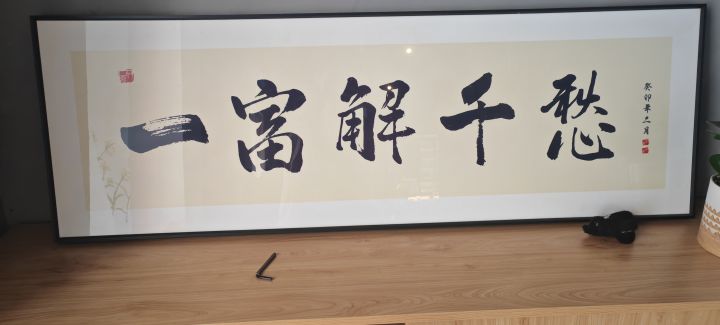 一富解千愁
癸卯年二月